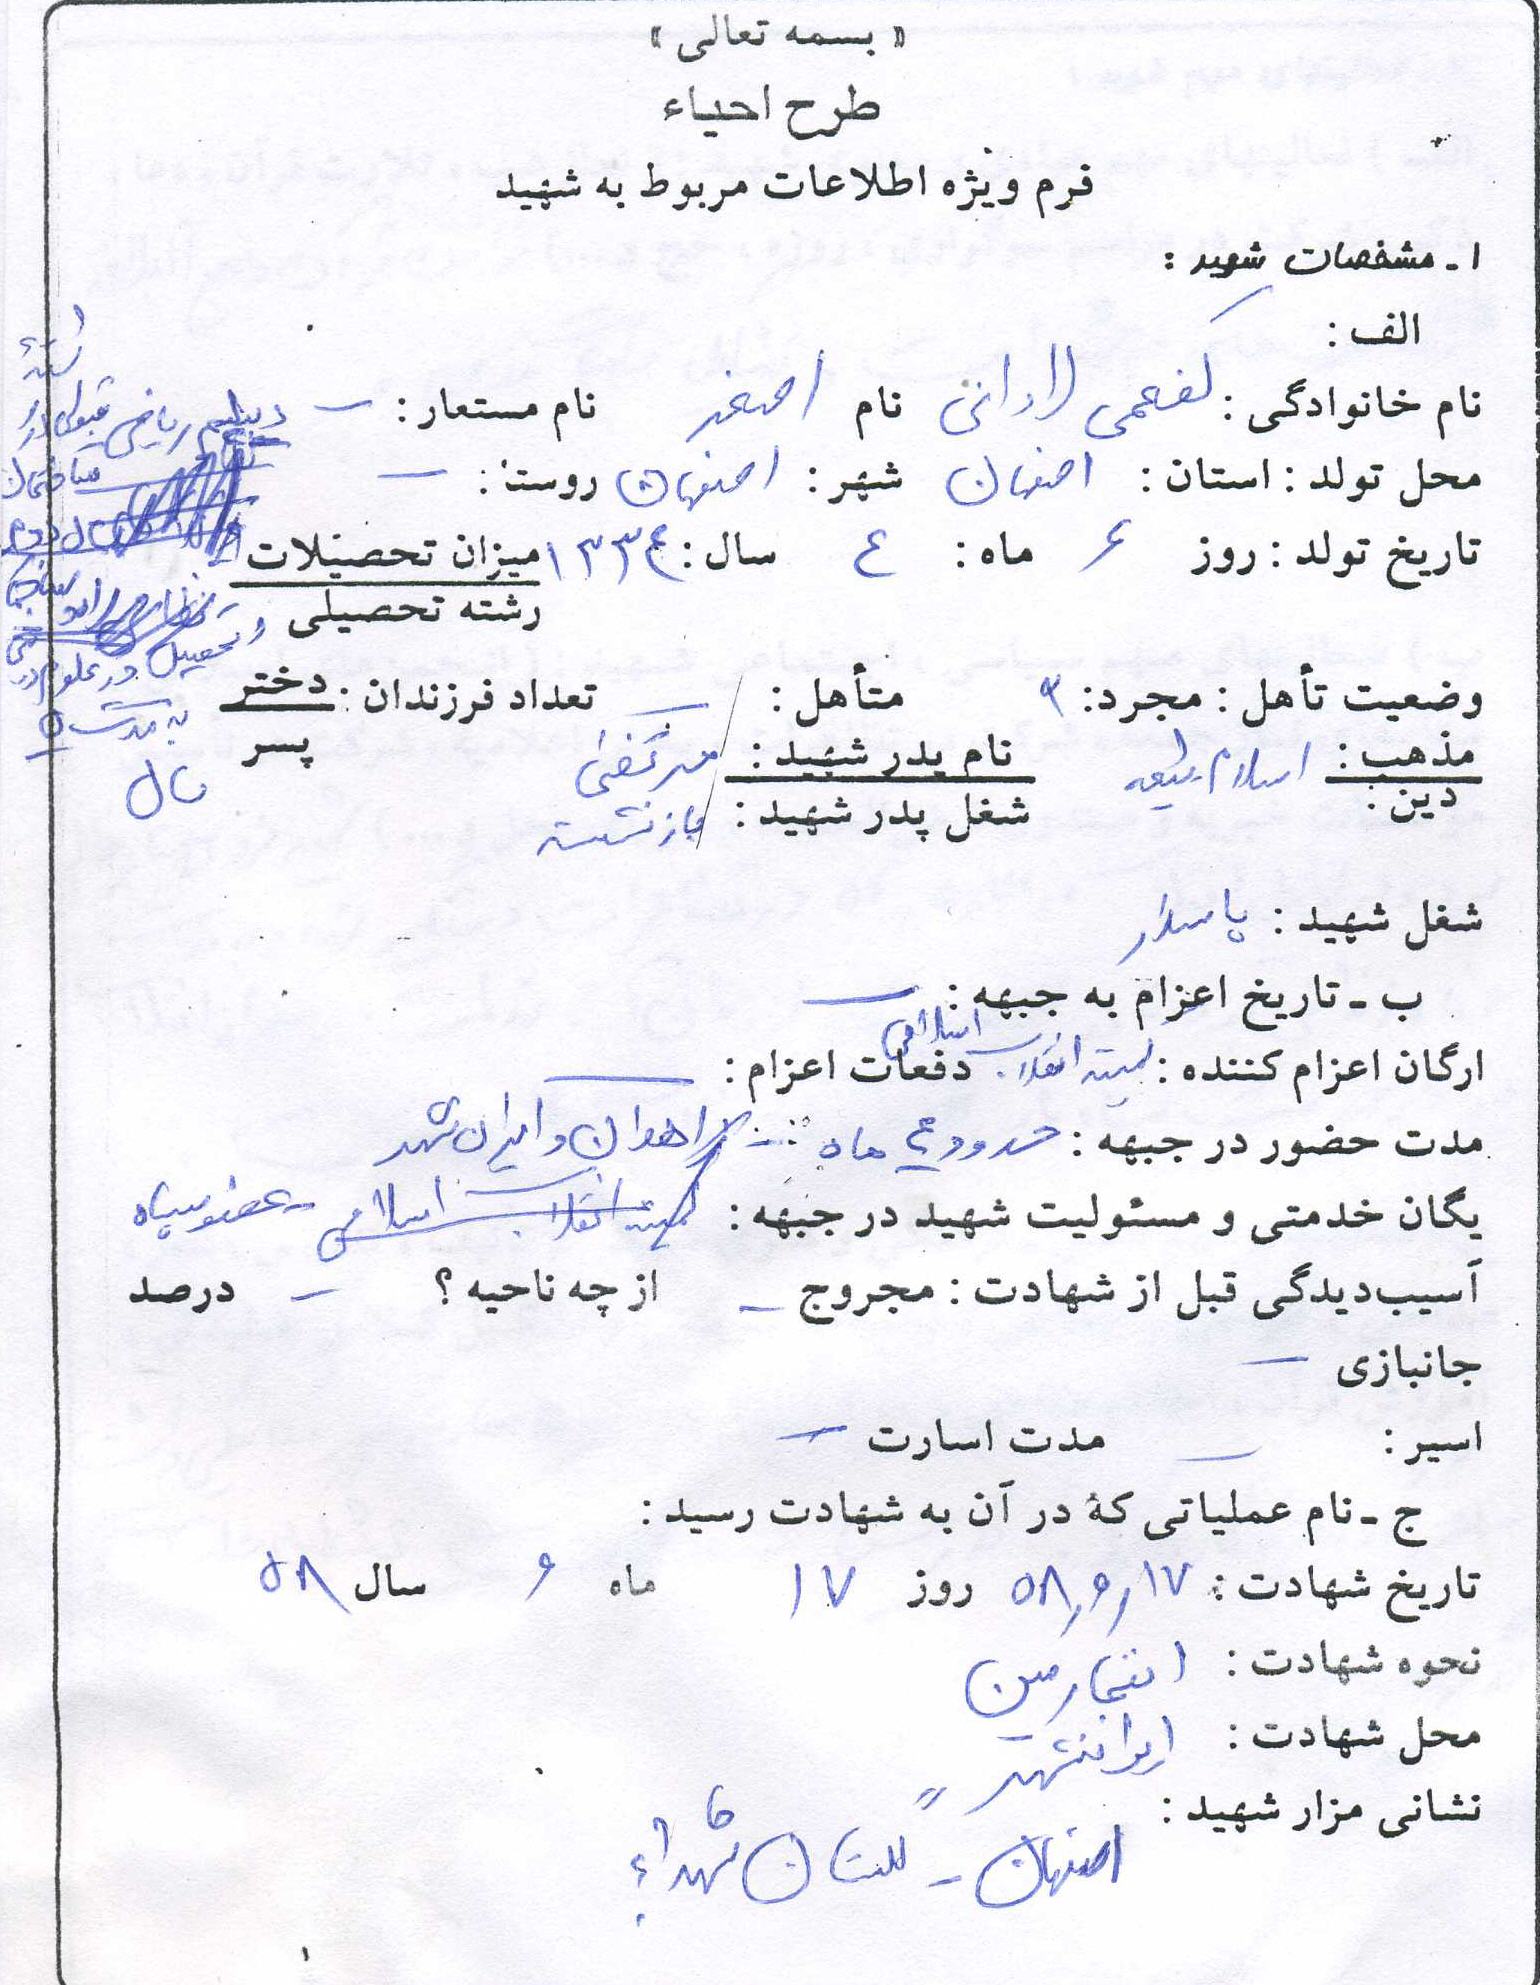 « بسمه تعالی »
طرح احیاء
فرم ویژه اطلاعات مربوط به شهید
۱ـ مشخصات شهید :
الف :
نام خانوادگی : نام اصغر نام مستعار : ـ
دیپلم ریاضی قبولی در
ساختمان
محل تولد : استان : اصفهان شهر : اصفهان روستا : ـ
تاریخ تولد : روز ۶ ماه : ٤ سال : ۱۳۳٤ میزان تحصیلات
رشته تحصیلی
و تحصیل در علوم
به مدت ۵
سال
وضعیت تأهل : مجرد : متأهل : ـ تعداد فرزندان : دختر
پسر
مذهب : اسلام شیعه نام پدر شهید : مرتضی
دین : شغل پدر شهید : بازنشسته
شغل شهید : پاسدار
ب ـ تاریخ اعزام به جبهه : ـ
ارگان اعزام کننده : کمیته انقلاب اسلامی دفعات اعزام : ـ
مدت حضور در جبهه : حدود ٤ ماه زاهدان و ایرانشهر
یگان خدمتی و مسئولیت شهید در جبهه : کمیته انقلاب اسلامی - عضو سپاه
آسیب‌دیدگی قبل از شهادت : مجروح ـ از چه ناحیه ؟ ـ درصد
جانبازی ـ
اسیر : ـ مدت اسارت ـ
ج ـ نام عملیاتی که در آن به شهادت رسید :
تاریخ شهادت : ۵۸٫۶٫۱۷ روز ۱۷ ماه ۶ سال ۵۸
نحوه شهادت : انفجار مین
محل شهادت : ایرانشهر
نشانی مزار شهید :
اصفهان - گلستان شهداء
۱